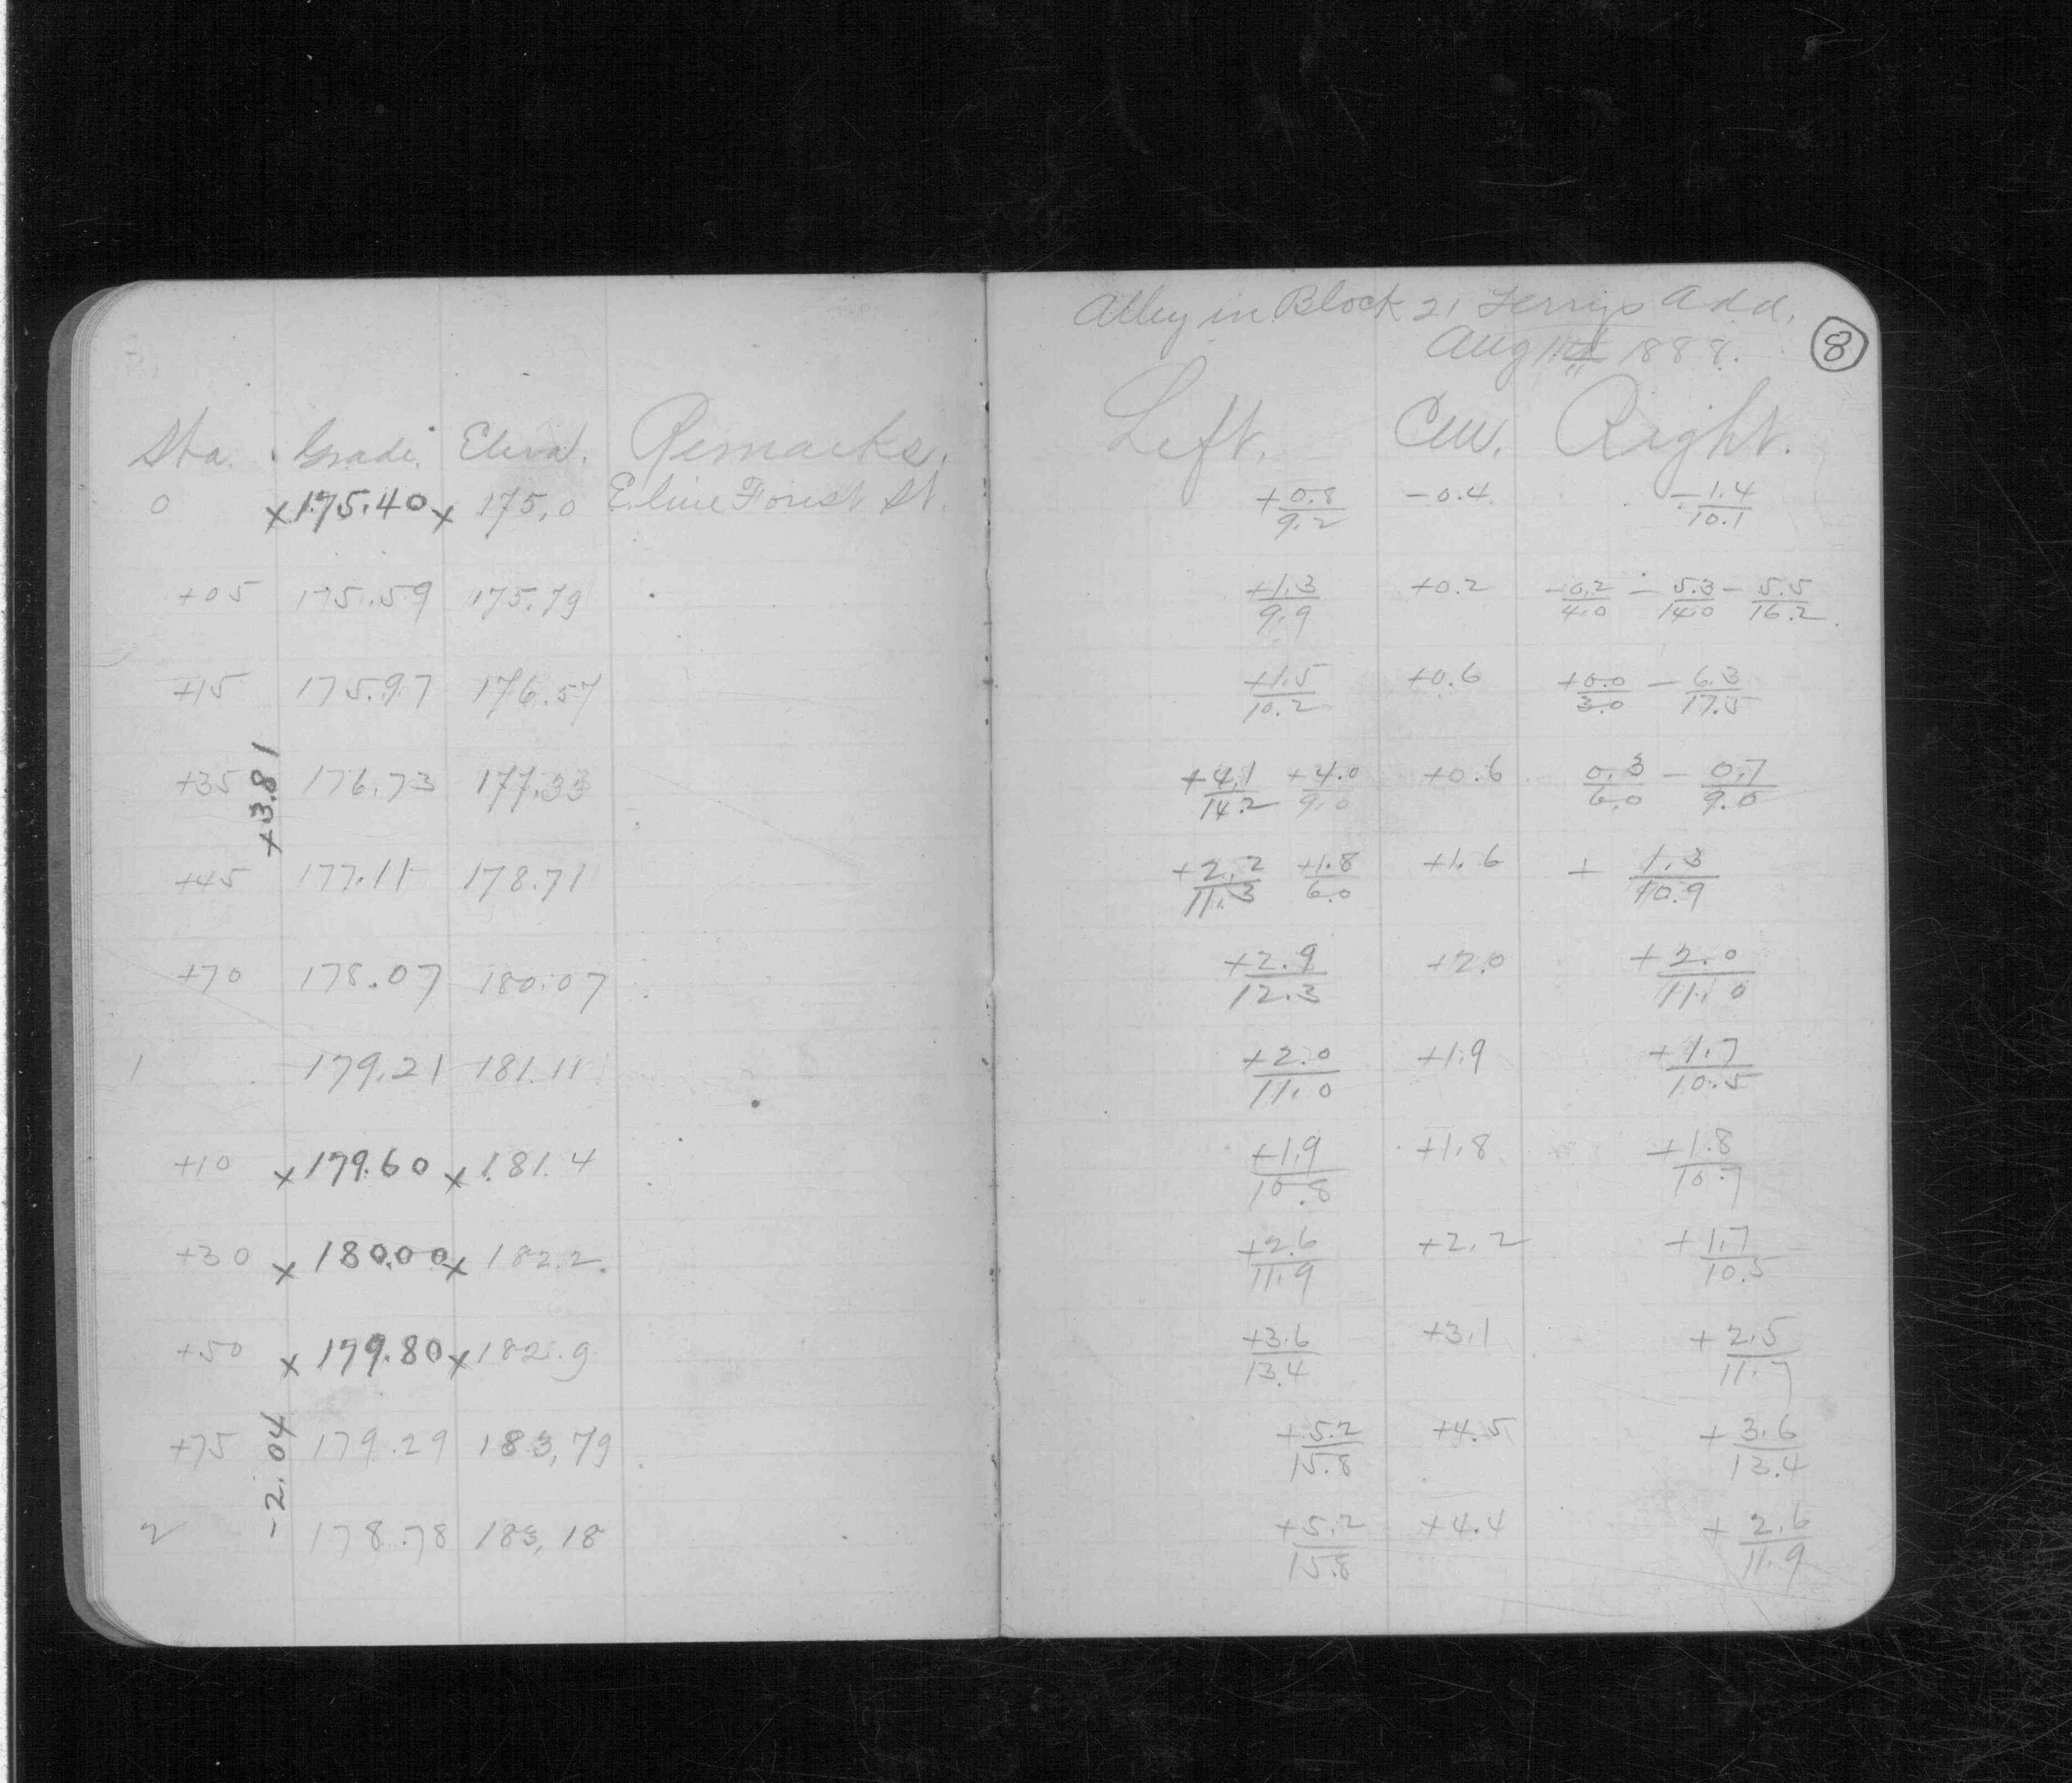 Alley in Block 21 Terrys Add.
Aug 1888. 8
Sta. Grade. Elevat. Remarks. Left. Cen. Right.
0 x 175.40 x 175.0 E line Forest St. +0.8/9.2 -0.4 -1.4/10.1
+05 175.59 175.79 +1.3/9.9 +0.2 -0.2/4.0 - 5.3/14.0 - 5.5/16.2
+15 175.97 176.57 +1.5/10.2 +0.6 +0.0/3.0 - 6.3/17.5
+35 176.73 177.33 +4.1/14.2 +4.0/9.0 +0.6 0.3/6.0 - 0.7/9.0
+3.81
+45 177.11 178.71 +2.2/11.3 +1.8/6.0 +1.6 + 1.3/10.9
+70 178.07 180.07 +2.9/12.3 +2.0 +2.0/11.0
1 179.21 181.11 +2.0/11.0 +1.9 +1.7/10.5
+10 x 179.60 x 181.4 +1.9/10.8 +1.8 +1.8/10.7
+30 x 180.00 x 182.2 +2.6/11.9 +2.2 +1.7/10.5
+50 x 179.80 x 182.9 +3.6/13.4 +3.1 +2.5/11.7
+75 179.29 183.79 +5.2/15.8 +4.5 +3.6/13.4
-2.04
2 178.78 183.18 +5.2/15.8 +4.4 +2.6/11.9